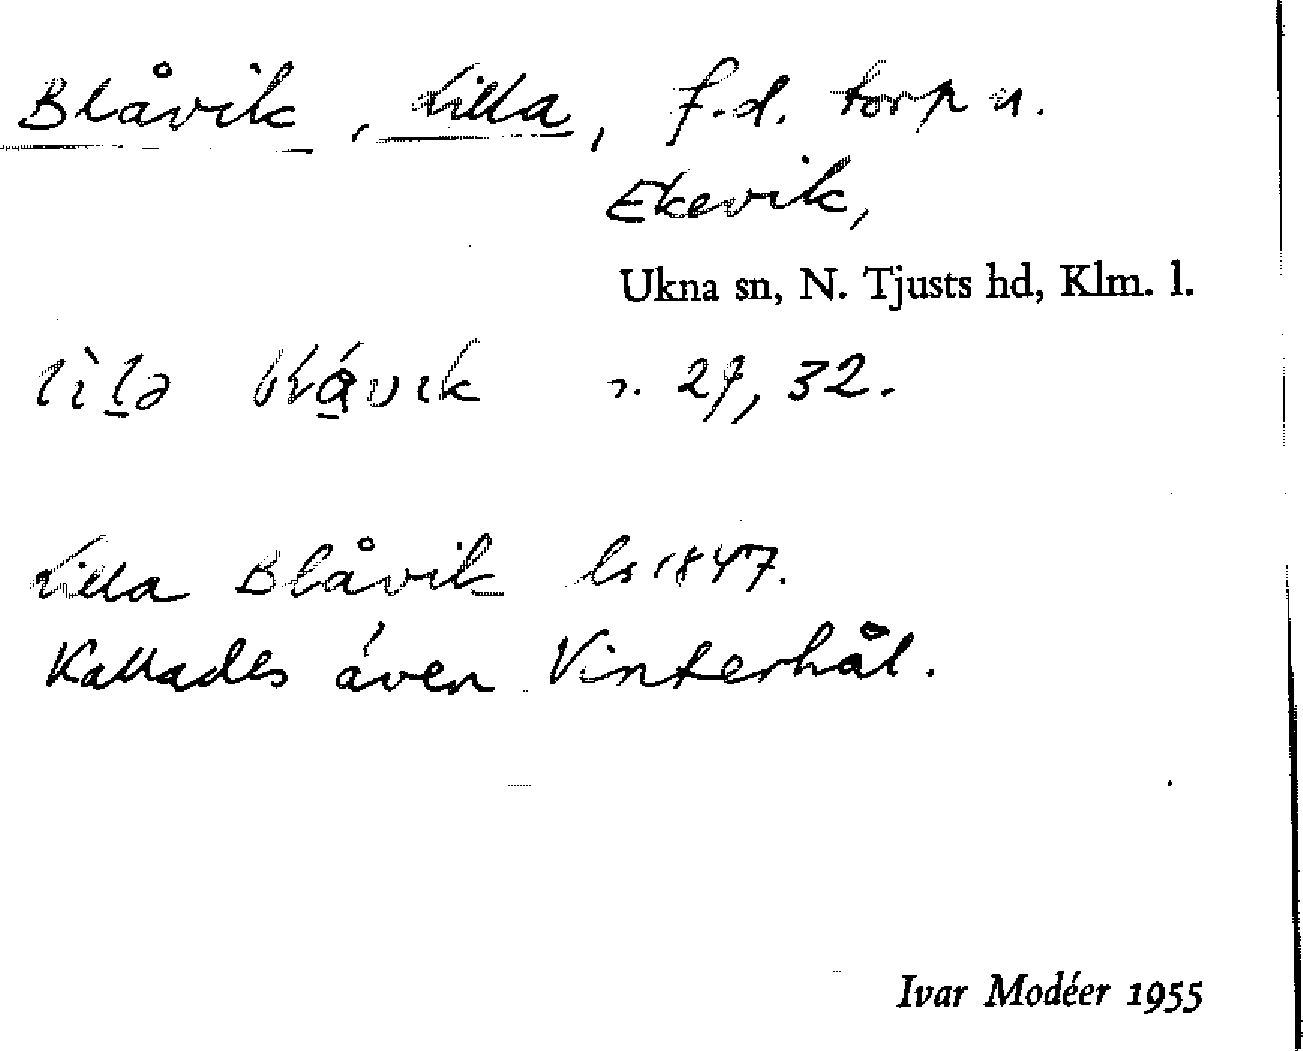 Blåvik, Lilla, f.d. torp u.
Ekevik,
Ukna sn, N. Tjusts hd, Klm. l.
27, 32.
Lilla Blåvik ls 1847.
Kallades även Vinterhål.
Ivar Modéer 1955